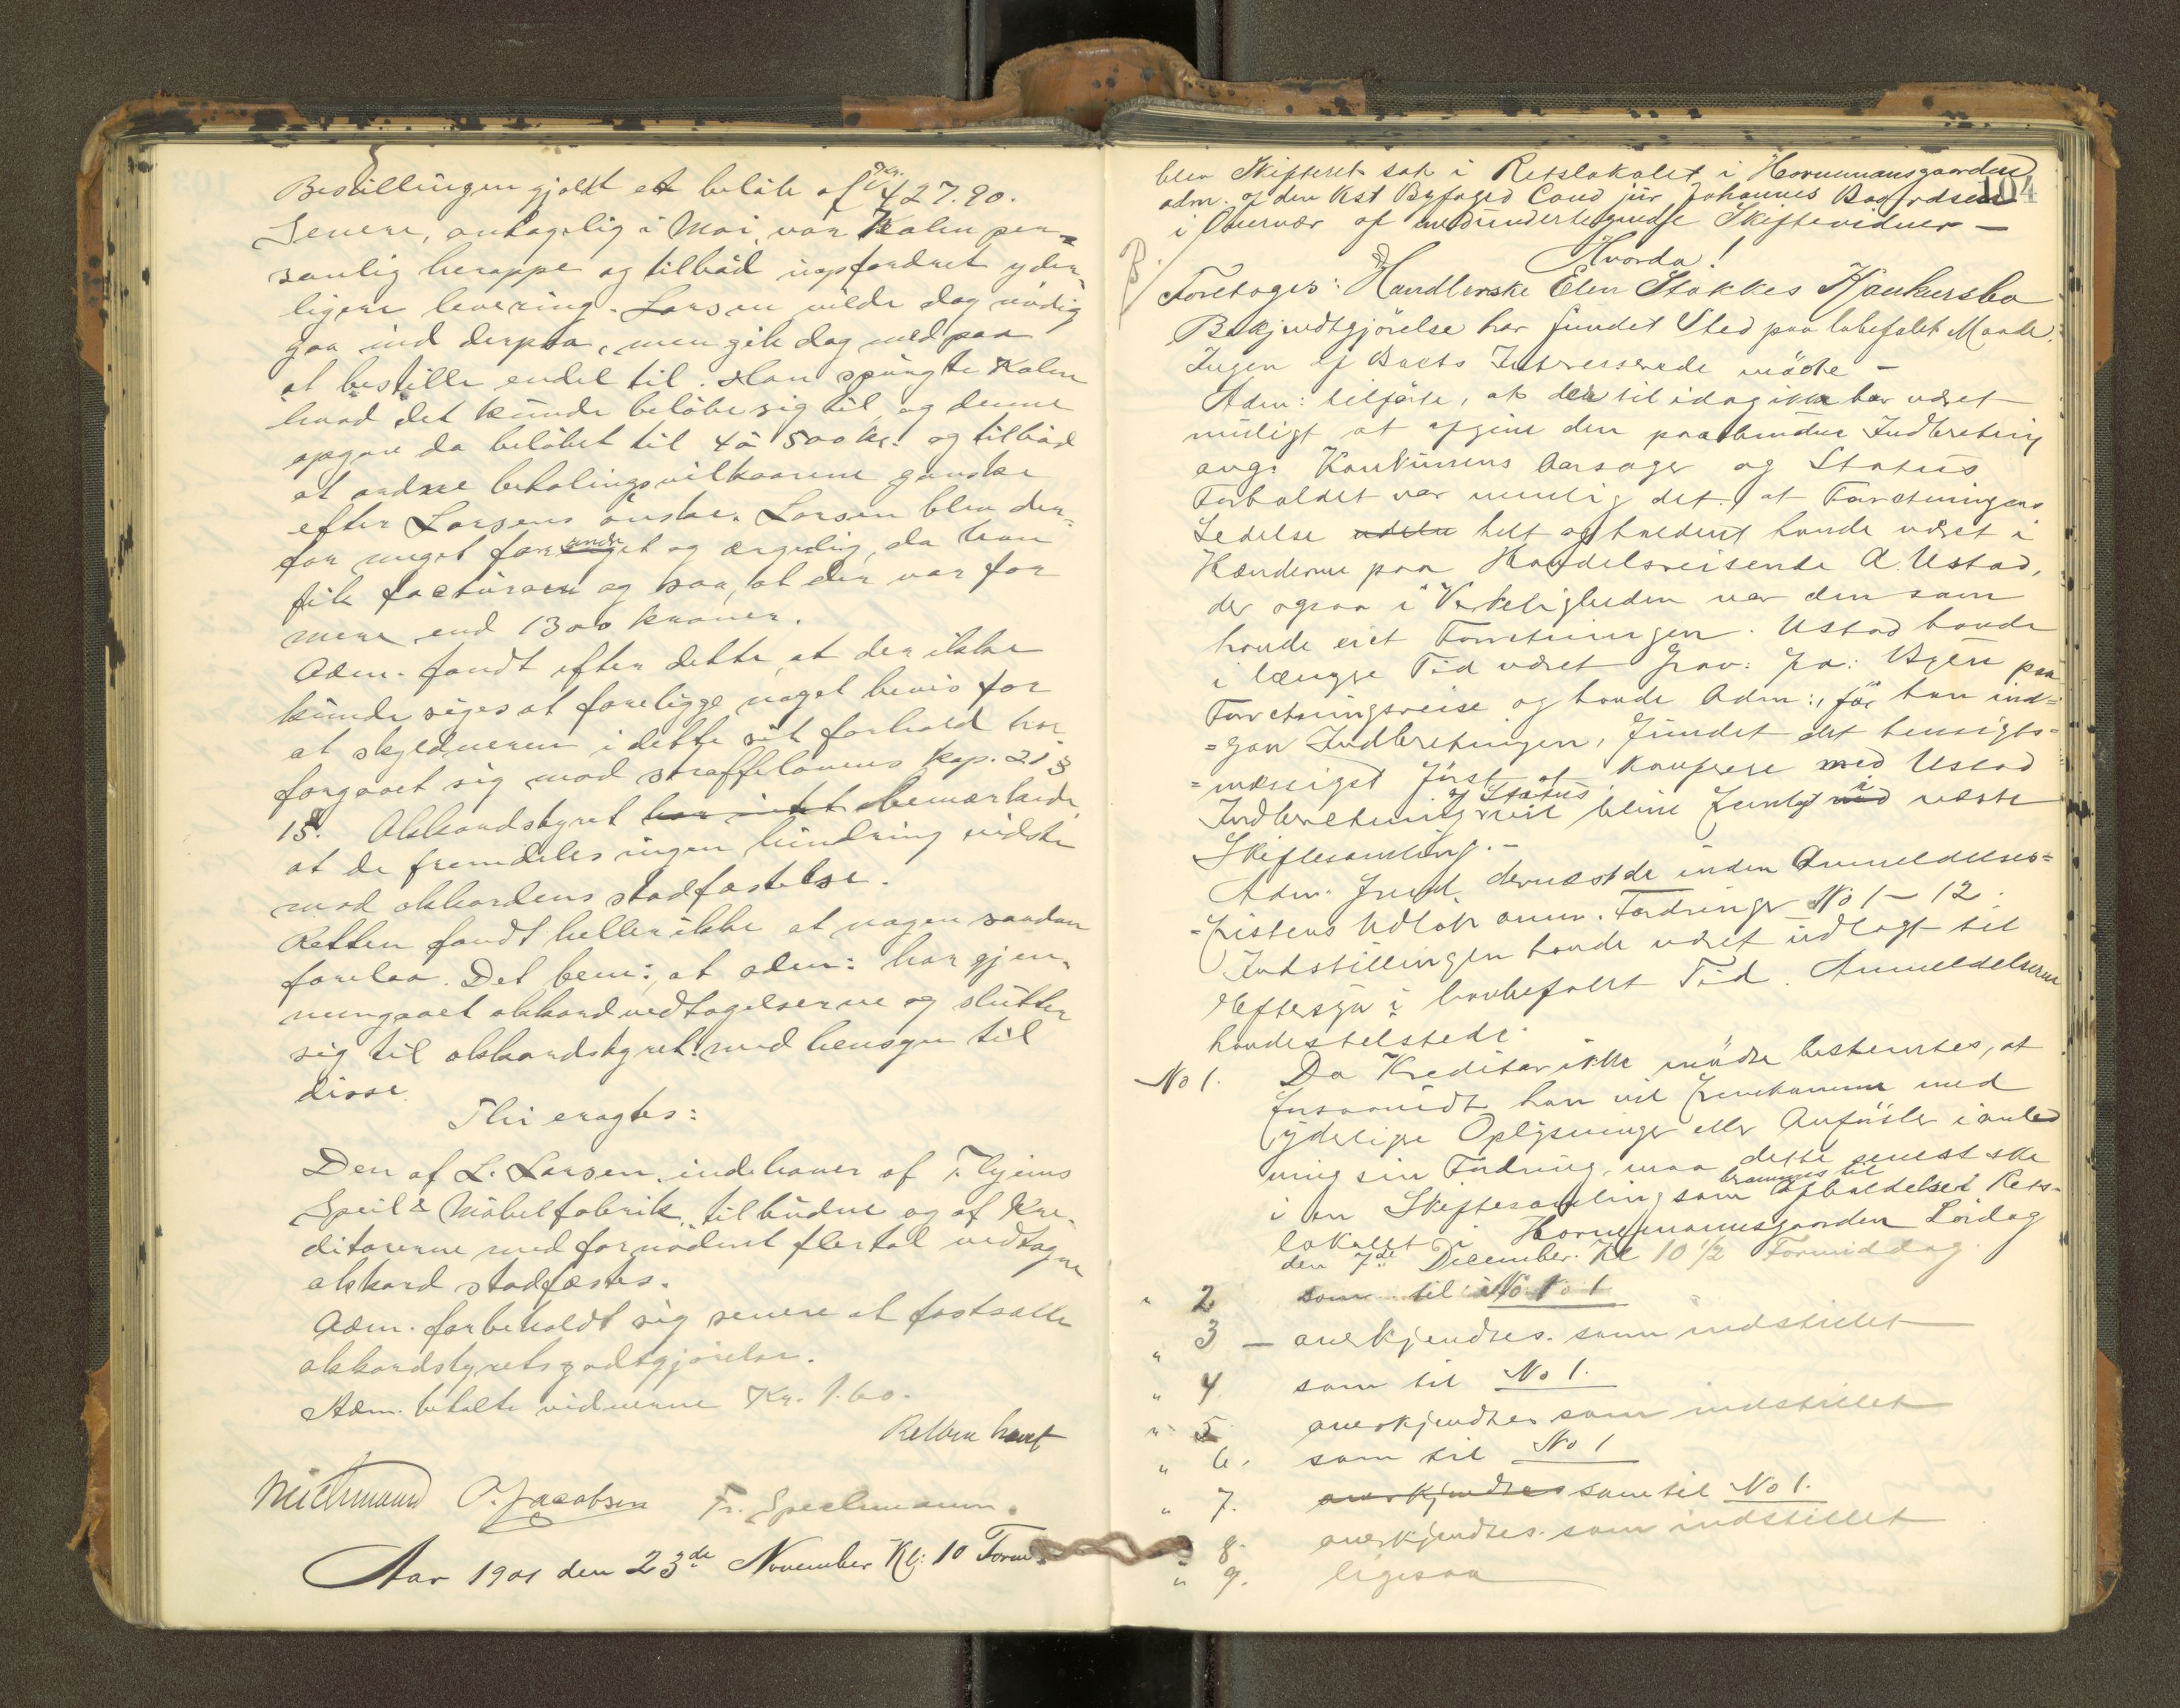 Bestillingen gjaldt et belöb af Kr. 427.90.
Senere, antagelig i Mai, var Kalin per-
sonlig heroppe og tilböd uopfordret yder-
ligere levering. Larsen vilde dog nödig
gaa ind derpaa, men gik dog med paa
at bestille endel til. Han spurgte Kalin
hvad det kunde belöbe sig til, og denne
opgav da belöbet til 4 à 500 kr. og tilböd
at ordne betalingsvilkaarene ganske
efter Larsens önske. Larsen blev der-
for meget forundret og ærgerlig, da han
fik facturaen og saa, at der var for
mere end 1300 kroner.
Adm. fandt efter dette, at der ikke
kunde siges at foreligge noget bevis for
at skyldneren i dette sit forhold har
forgaaet sig mod straffelovens kap. 21 §
15. Akkordstyret har intet bemærkede
at de fremdeles ingen hindring vidste
mod akkordens stadfæstelse.
Retten fandt heller ikke at nogen saadan
forelaa. Det bem: at adm: har gjen-
nemgaaet akkordvedtagelserne og slutter
sig til akkordstyret med hensyn til
disse.
Thi eragtes:
Den af L. Larsen, indehaver af Thjems
Speil & Möbelfabrik, tilbudne og af Kre-
ditorerne med fornödent flertal vedtagne
akkord stadfæstes.
Adm. forbeholdt sig senere at fastsætte
akkordstyrets godtgjörelse.
Adm. betalte vidnerne Kr. 1.60.
Retten hævet
O. Jacobsen Fr. Speilmann.
Aar 1901 den 23de November Kl: 10 Form.
104
blev Skifteret sat i Retslokalet i Hornemansgaarden
adm. af den Kst Byfoged Cand jur Johannes Bagrdsen
i Overvær af medundertegnede Skiftevidner —
Hvorda!
B. Foretoges: Handlerske Elen Stokkes Konkursbo
Bekjendtgjörelse har fundet Sted paa lovbefalet Maade.
Ingen af Boets Interesserede mödte —
Adm: tilförte, at det til idag ikke har været
muligt at afgive den paabudne Indberetning
ang. Konkursens Aarsager og Status
Forholdet var nemlig det, at Forretningens
Ledelse udelu helt og holdent havde været i
Hænderne paa Handelsreisende A. Ustad,
der ogsaa i Virkeligheden var den som
havde eiet Forretningen. Ustad havde
i længre Tid været frav: fra: Byen paa
Forretningsreise og havde Adm:, för han ind-
=gav Indberetningen, fundet det hensigts-
=mæssigst först at konferere med Ustad
Indberetning af Status vil blive fremlagt med i næste
Skiftesamling. —
Adm. freml. dernæst de inden Anmeldelses-
=fristens Udlöb anm. Fordringer No 1 – 12.
Indstillingen havde været udlagt til
Eftersyn i lovbefalet Tid. Anmeldelserne
havdestelstede
No 1. Da Kreditor ikke mödte bestemtes, at
forsaavidt han vil fremkomme med
yderligere Oplysninger eller Anförsler i anled
ning sin Fordring, maa dette senest ske
i en Skiftesamling som berammes til Afholdelse i Rets-
lokalet i Hornemannsgaarden Lördag
den 7de December. Kl 10 1/2 Formiddag.
" 2 som til No 1
" 3 — anerkjendtes som indstillet
" 4. som til No 1.
" 5. anerkjendtes som indstillet
" 6. som til No 1
" 7. anerkjendtes som til No 1.
" 8. anerkjendtes som indstillet
" 9. ligesaa